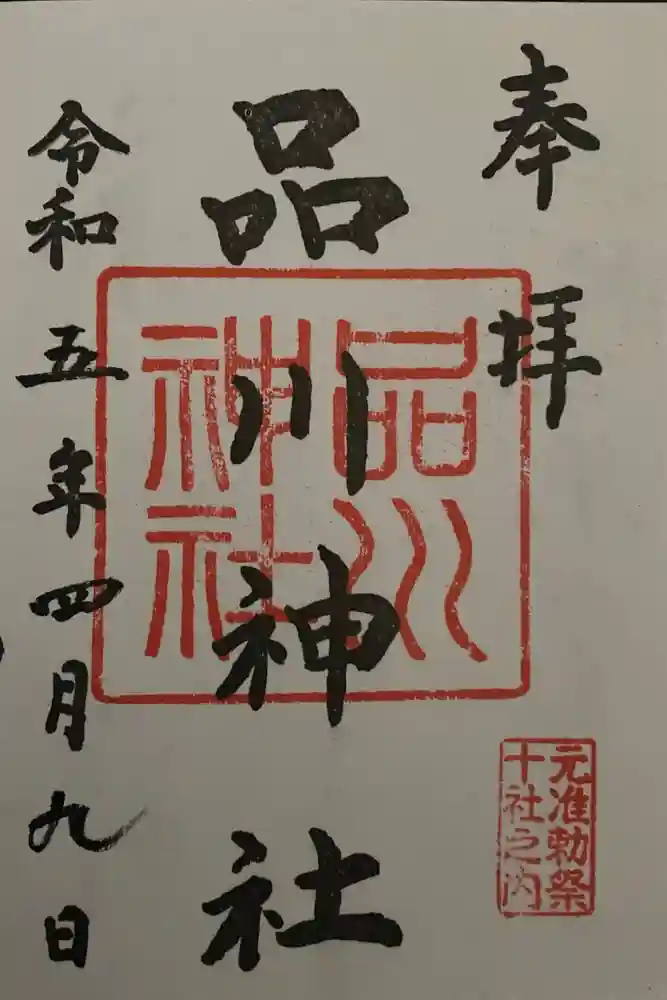 奉拝
品川神社
令和五年四月九日
品川
神社
元准勅祭
十社之内